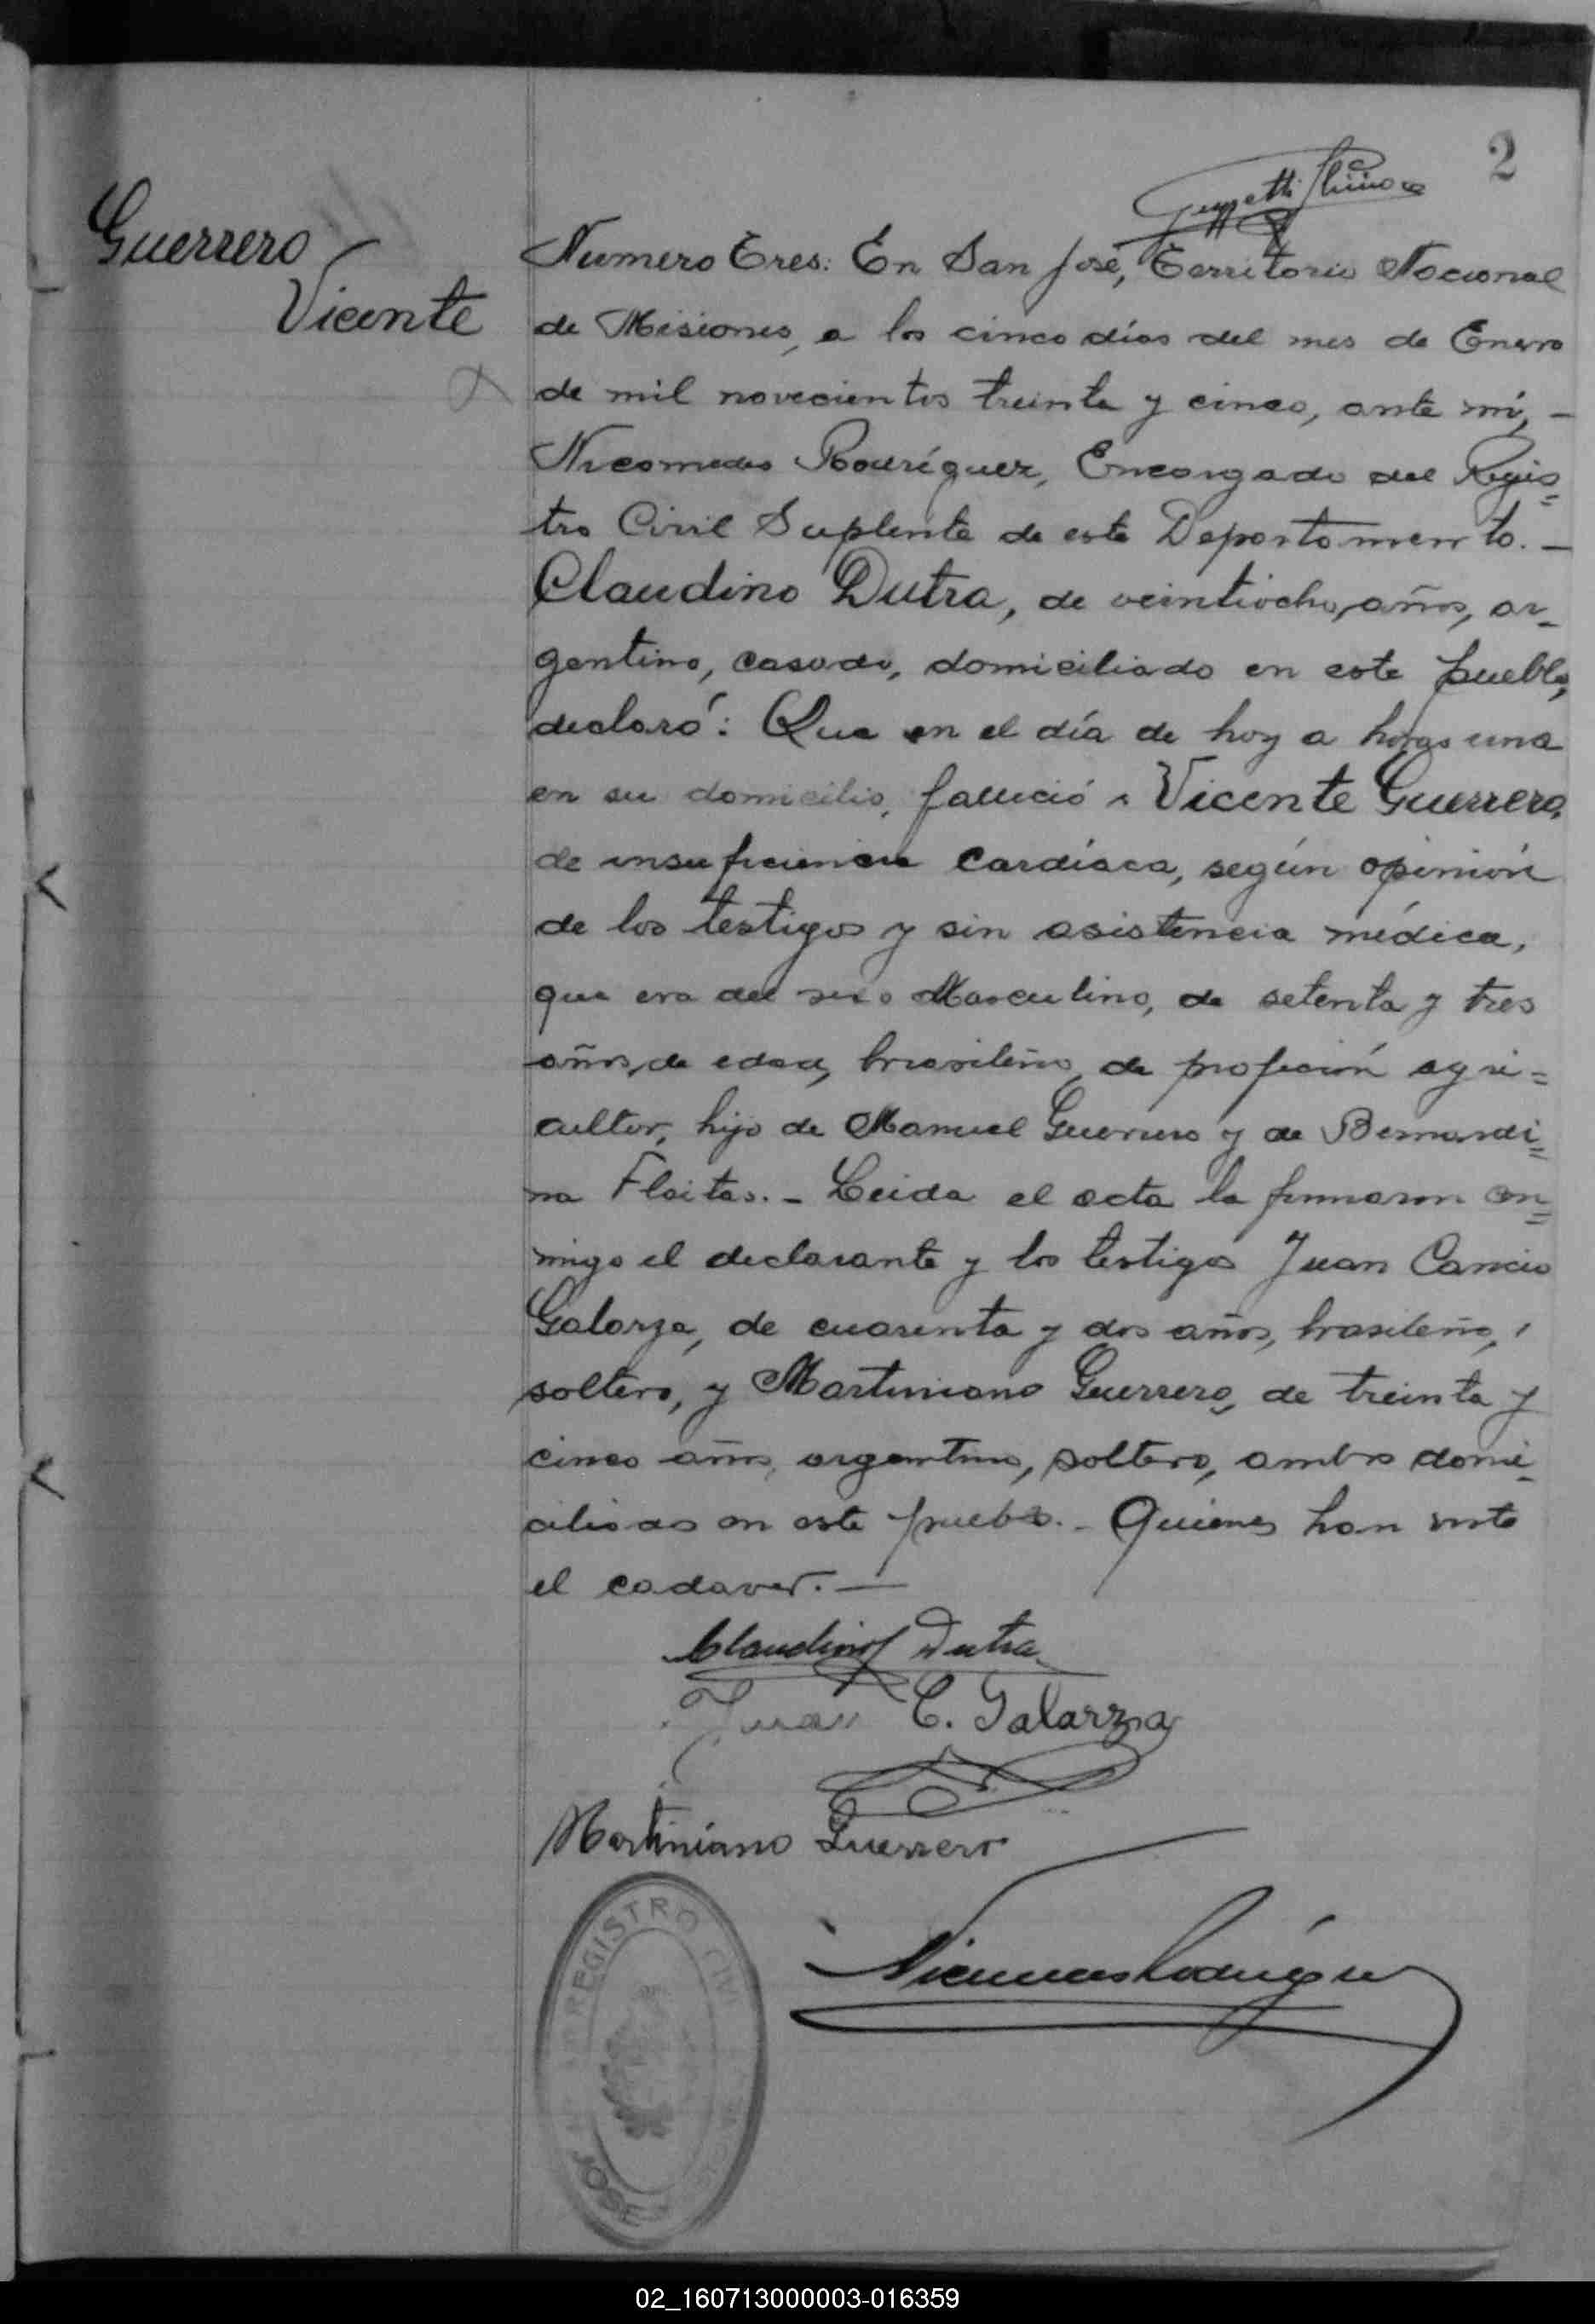 2
Guerrero
Vicente
Numero Tres: En San José, Territorio Nacional
de Misiones, a los cinco días del mes de Enero
de mil novecientos treinta y cinco, ante mí, –
Nicomedes Rodríguez, Encargado del Regis=
tro Civil Suplente de este Departamento. –
Claudino Dutra, de veintiocho, años, ar-
gentino, casado, domiciliado en este pueblo,
declaró: Que en el día de hoy a horas una
en su domicilio, falleció Vicente Guerrero,
de insuficiencia cardíaca, según opinión
de los testigos y sin asistencia médica,
que era del sexo Masculino, de setenta y tres
años, de edad, brasileño, de profeción agri=
cultor, hijo de Manuel Guerrero y de Bernardi=
na Fleitas. – Leida el acta la firmaron con=
migo el declarante y los testigos Juan Cancio
Galarza, de cuarenta y dos años, brasileño,
soltero, y Martiniano Guerrero, de treinta y
cinco años, argentino, soltero, ambos domi-
ciliados en este pueblo. – Quienes han visto
el cadaver. —
Claudino Dutra
Juan C. Galarza
Martiniano Guerrero
REGISTRO CIVIL
Nicomedes Rodríguez
JOSE
02_160713000003-016359